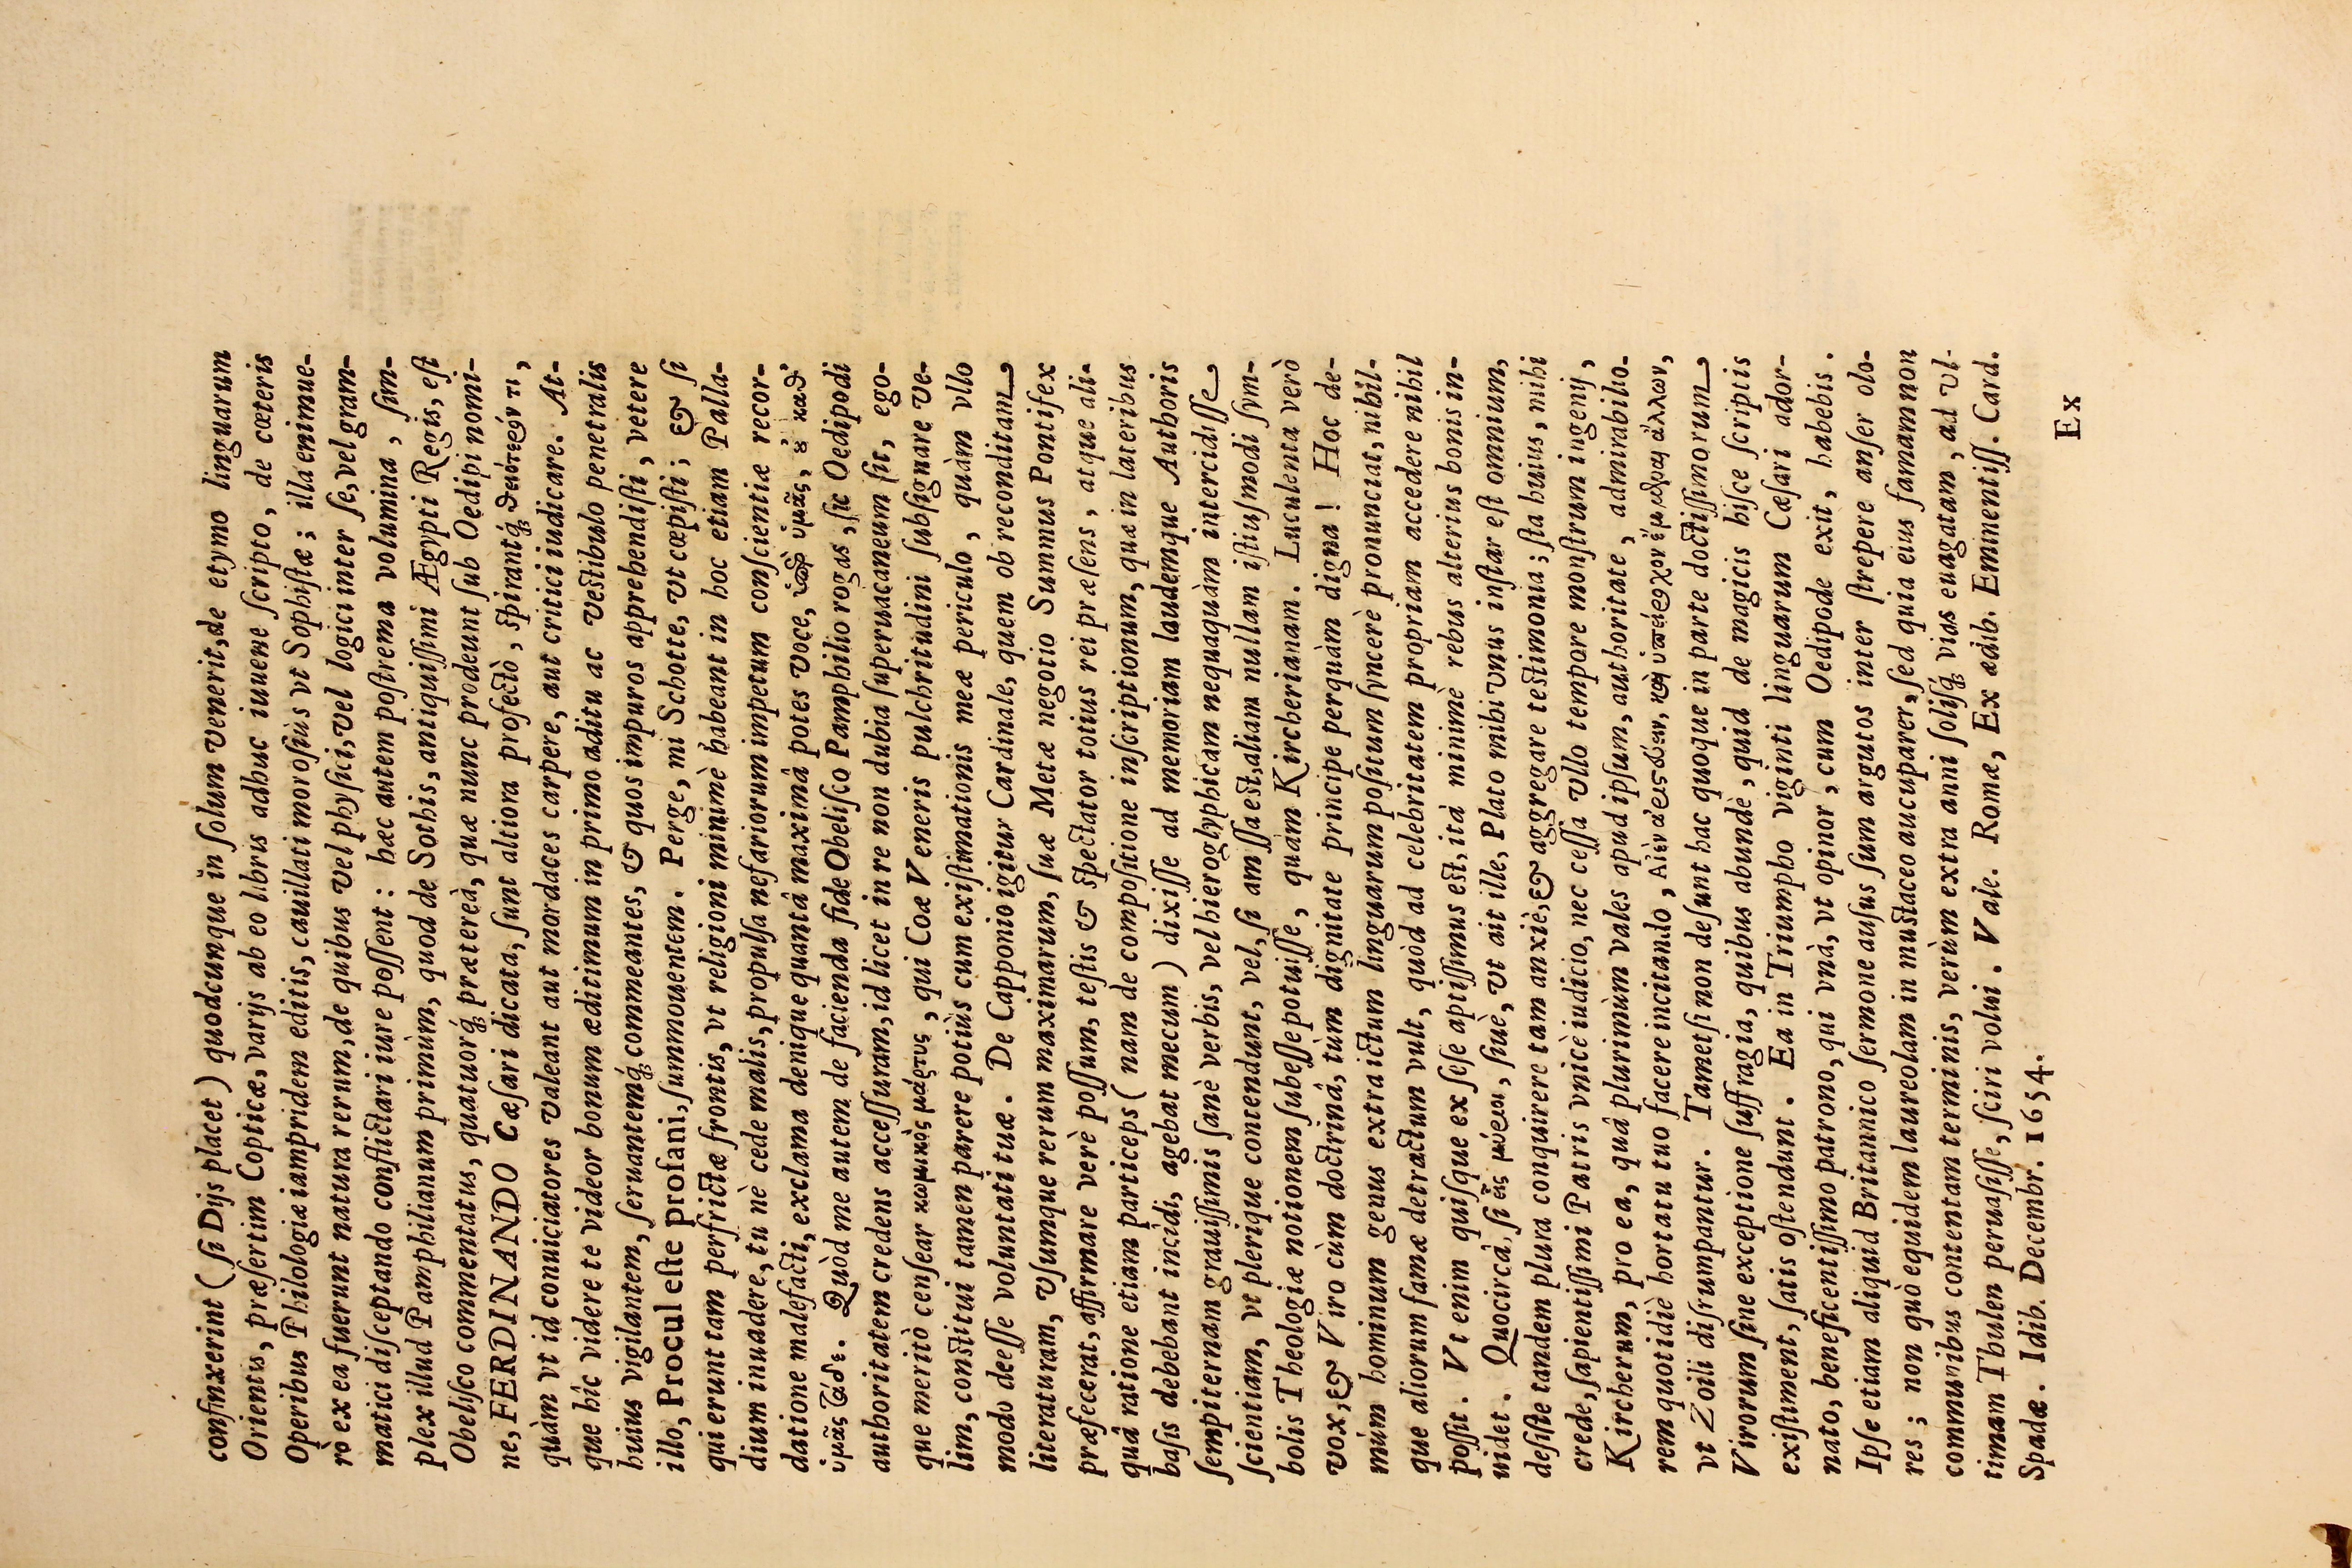 confinxerint (ſi Dijs placet) quodcunque in ſolum venerit, de etymo linguarum
Orientis, præſertim Copticæ, varijs ab eo libris adhuc iuuene ſcripto, de cæteris
Operibus Philologiæ iampridem editis, cauillati moroſiùs vt Sophiſtæ; illa enimue-
rò ex ea fuerunt natura rerum, de quibus vel phyſici, vel logici inter ſe, vel gram-
matici diſceptando conflictari iure poſſent: hæc autem poſtrema volumina, ſim-
plex illud Pamphilianum primùm, quod de Sothis, antiquiſſimi Ægypti Regis, eſt
Obeliſco commentatus, quatuorq́; prætereà, quæ nunc prodeunt ſub Oedipi nomi-
ne, FERDINANDO Cæſari dicata, ſunt altiora profectò, ſpirantq́; θειότερόν τι,
quàm vt id conuiciatores valeant aut mordaces carpere, aut critici iudicare. At-
que hîc videre te videor bonum æditimum in primo aditu ac veſtibulo penetralis
huius vigilantem, ſeruantemq́; commeantes, & quos impuros apprehendiſti, vetere
illo, Procul eſte profani, ſummouentem. Perge, mi Schotte, vt cœpiſti; & ſi
qui erunt tam perfrictæ frontis, vt religioni minimè habeant in hoc etiam Palla-
dium inuadere, tu nè cede malis, propulſa nefariorum impetum conſcientiæ recor-
datione malefacti, exclama denique quantâ maximâ potes voce, ὑπὲρ ὑμᾶς, ȣ̓ καθ'
ὑμᾶς τάδε. Quòd me autem de facienda fide Obeliſco Pamphilio rogas, ſic Oedipodi
authoritatem credens acceſſuram, id licet in re non dubia ſuperuacaneum ſit, ego-
que meritò cenſear κωμικὸς μάρτυς, qui Coæ Veneris pulchritudini ſubſignare ve-
lim, conſtitui tamen parere potiùs cum exiſtimationis meæ periculo, quàm vllo
modo deeſſe voluntati tuæ. De Capponio igitur Cardinale, quem ob reconditam
literaturam, vſumque rerum maximarum, ſuæ Metæ negotio Summus Pontifex
præfecerat, affirmare verè poſſum, teſtis & ſpectator totius rei præſens, atque ali-
quâ ratione etiam particeps (nam de compoſitione inſcriptionum, quæ in lateribus
baſis debebant incidi, agebat mecum) dixiſſe ad memoriam laudemque Authoris
ſempiternam grauiſſimis ſanè verbis, vel hieroglyphicam nequaquàm intercidiſſe
ſcientiam, vt plerique contendunt, vel, ſi amiſſa eſt, aliam nullam iſtiuſmodi ſym-
bolis Theologiæ notionem ſubeſſe potuiſſe, quàm Kircherianam. Luculenta verò
vox, & Viro cùm doctrinâ, tùm dignitate principe perquàm digna! Hoc de-
mùm hominum genus extra ictum linguarum poſitum ſyncerè pronunciat, nihil-
que aliorum famæ detractum vult, quòd ad celebritatem propriam accedere nihil
poſſit. Vt enim quiſque ex ſeſe aptiſſimus eſt, ità minimè rebus alterius bonis in-
uidet. Quocircà, ſi εἷς μύριοι, ſiuè, vt ait ille, Plato mihi vnus inſtar eſt omnium,
deſiſte tandem plura conquirere tam anxiè, & aggregare teſtimonia; ſta huius, mihi
crede, ſapientiſſimi Patris vnicè iudicio, nec ceſſa vllo tempore monſtrum ingenij,
Kircherum, pro ea, quâ plurimùm vales apud ipſum, authoritate, admirabilio-
rem quotidiè hortatu tuo facere incitando, Αἰὲν ἀριστεύειν, καὶ ὑπείροχον ἔμμεναι ἄλλων,
vt Zoili diſrumpantur. Tametſi non deſunt hac quoque in parte doctiſſimorum
Virorum ſine exceptione ſuffragia, quibus abundè, quid de magicis hiſce ſcriptis
exiſtiment, ſatis oſtendunt. Ea in Triumpho viginti linguarum Cæſari ador-
nato, beneficentiſſimo patrono, qui vnà, vt opinor, cum Oedipode exit, habebis.
Ipſe etiam aliquid Britannico ſermone auſus ſum argutos inter ſtrepere anſer olo-
res; non quò equidem laureolam in muſtaceo aucuparer, ſed quia eius famam non
communibus contentam terminis, verùm extra anni ſoliſq́; vias euagatam, ad vl-
timam Thulen peruaſiſſe, ſciri volui. Vale. Romæ, Ex ædib. Eminentiſſ. Card.
Spadæ. Idib. Decembr. 1654.
Ex